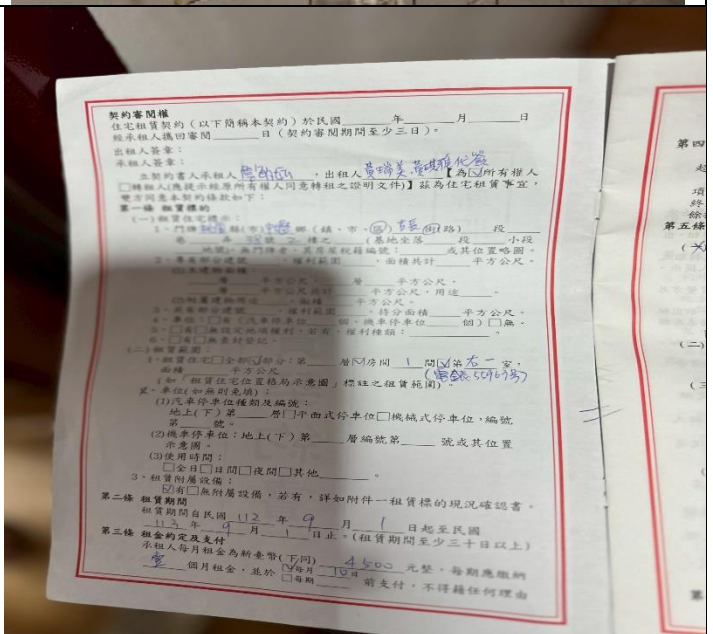 契約審閱權
住宅租賃契約(以下簡稱本契約)於民國 年 月 日
經承租人攜回審閱 日(契約審閱期間至少三日)。
出租人簽章:
承租人簽章:
立契約書人承租人 ,出租人 【為☑所有權人
□轉租人(應提示經原所有權人同意轉租之證明文件)】茲為住宅租賃事宜,
雙方同意本契約條款如下:
第一條 租賃標的
(一)租賃住宅標示:
1、門牌 縣(市) 鄉(鎮、市、區) 街(路) 段
巷 弄 38號 2樓之 (基地坐落 段 小段
地號)。無門牌者,其房屋稅籍編號: 或其位置略圖。
2、專有部分建號 ,權利範圍 ,面積共計 平方公尺。
(1)主建物面積:
層 平方公尺, 層 平方公尺,
層 平方公尺共計 平方公尺,用途 。
(2)附屬建物用途 ,面積 平方公尺。
3、共有部分建號 ,權利範圍 ,持分面積 平方公尺。
4、車位:□有(汽車停車位 個、機車停車位 個)□無。
5、□有□無設定他項權利,若有,權利種類: 。
6、□有□無查封登記。
(二)租賃範圍:
1、租賃住宅□全部☑部分:第 層☑房間 1 間☑第右一室,
面積 平方公尺
(如「租賃住宅位置格局示意圖」標註之租賃範圍)。
車位(如無則免填):
(1)汽車停車位種類及編號:
地上(下)第 層□平面式停車位□機械式停車位,編號
第 號。
(2)機車停車位:地上(下)第 層編號第 號或其位置
示意圖。
(3)使用時間:
□全日□日間□夜間□其他 。
3、租賃附屬設備:
☑有□無附屬設備,若有,詳如附件一租賃標的現況確認書。
第二條 租賃期間
租賃期間自民國 112 年 9 月 1 日起至民國
113 年 9 月 1 日止。(租賃期間至少三十日以上)
第三條 租金約定及支付
承租人每月租金為新臺幣(下同) 4500 元整,每期應繳納
壹 個月租金,並於 ☑每月 10日 前支付,不得藉任何理由
□每期
第四
起
項
終
餘
第五條
(二)
(三
第